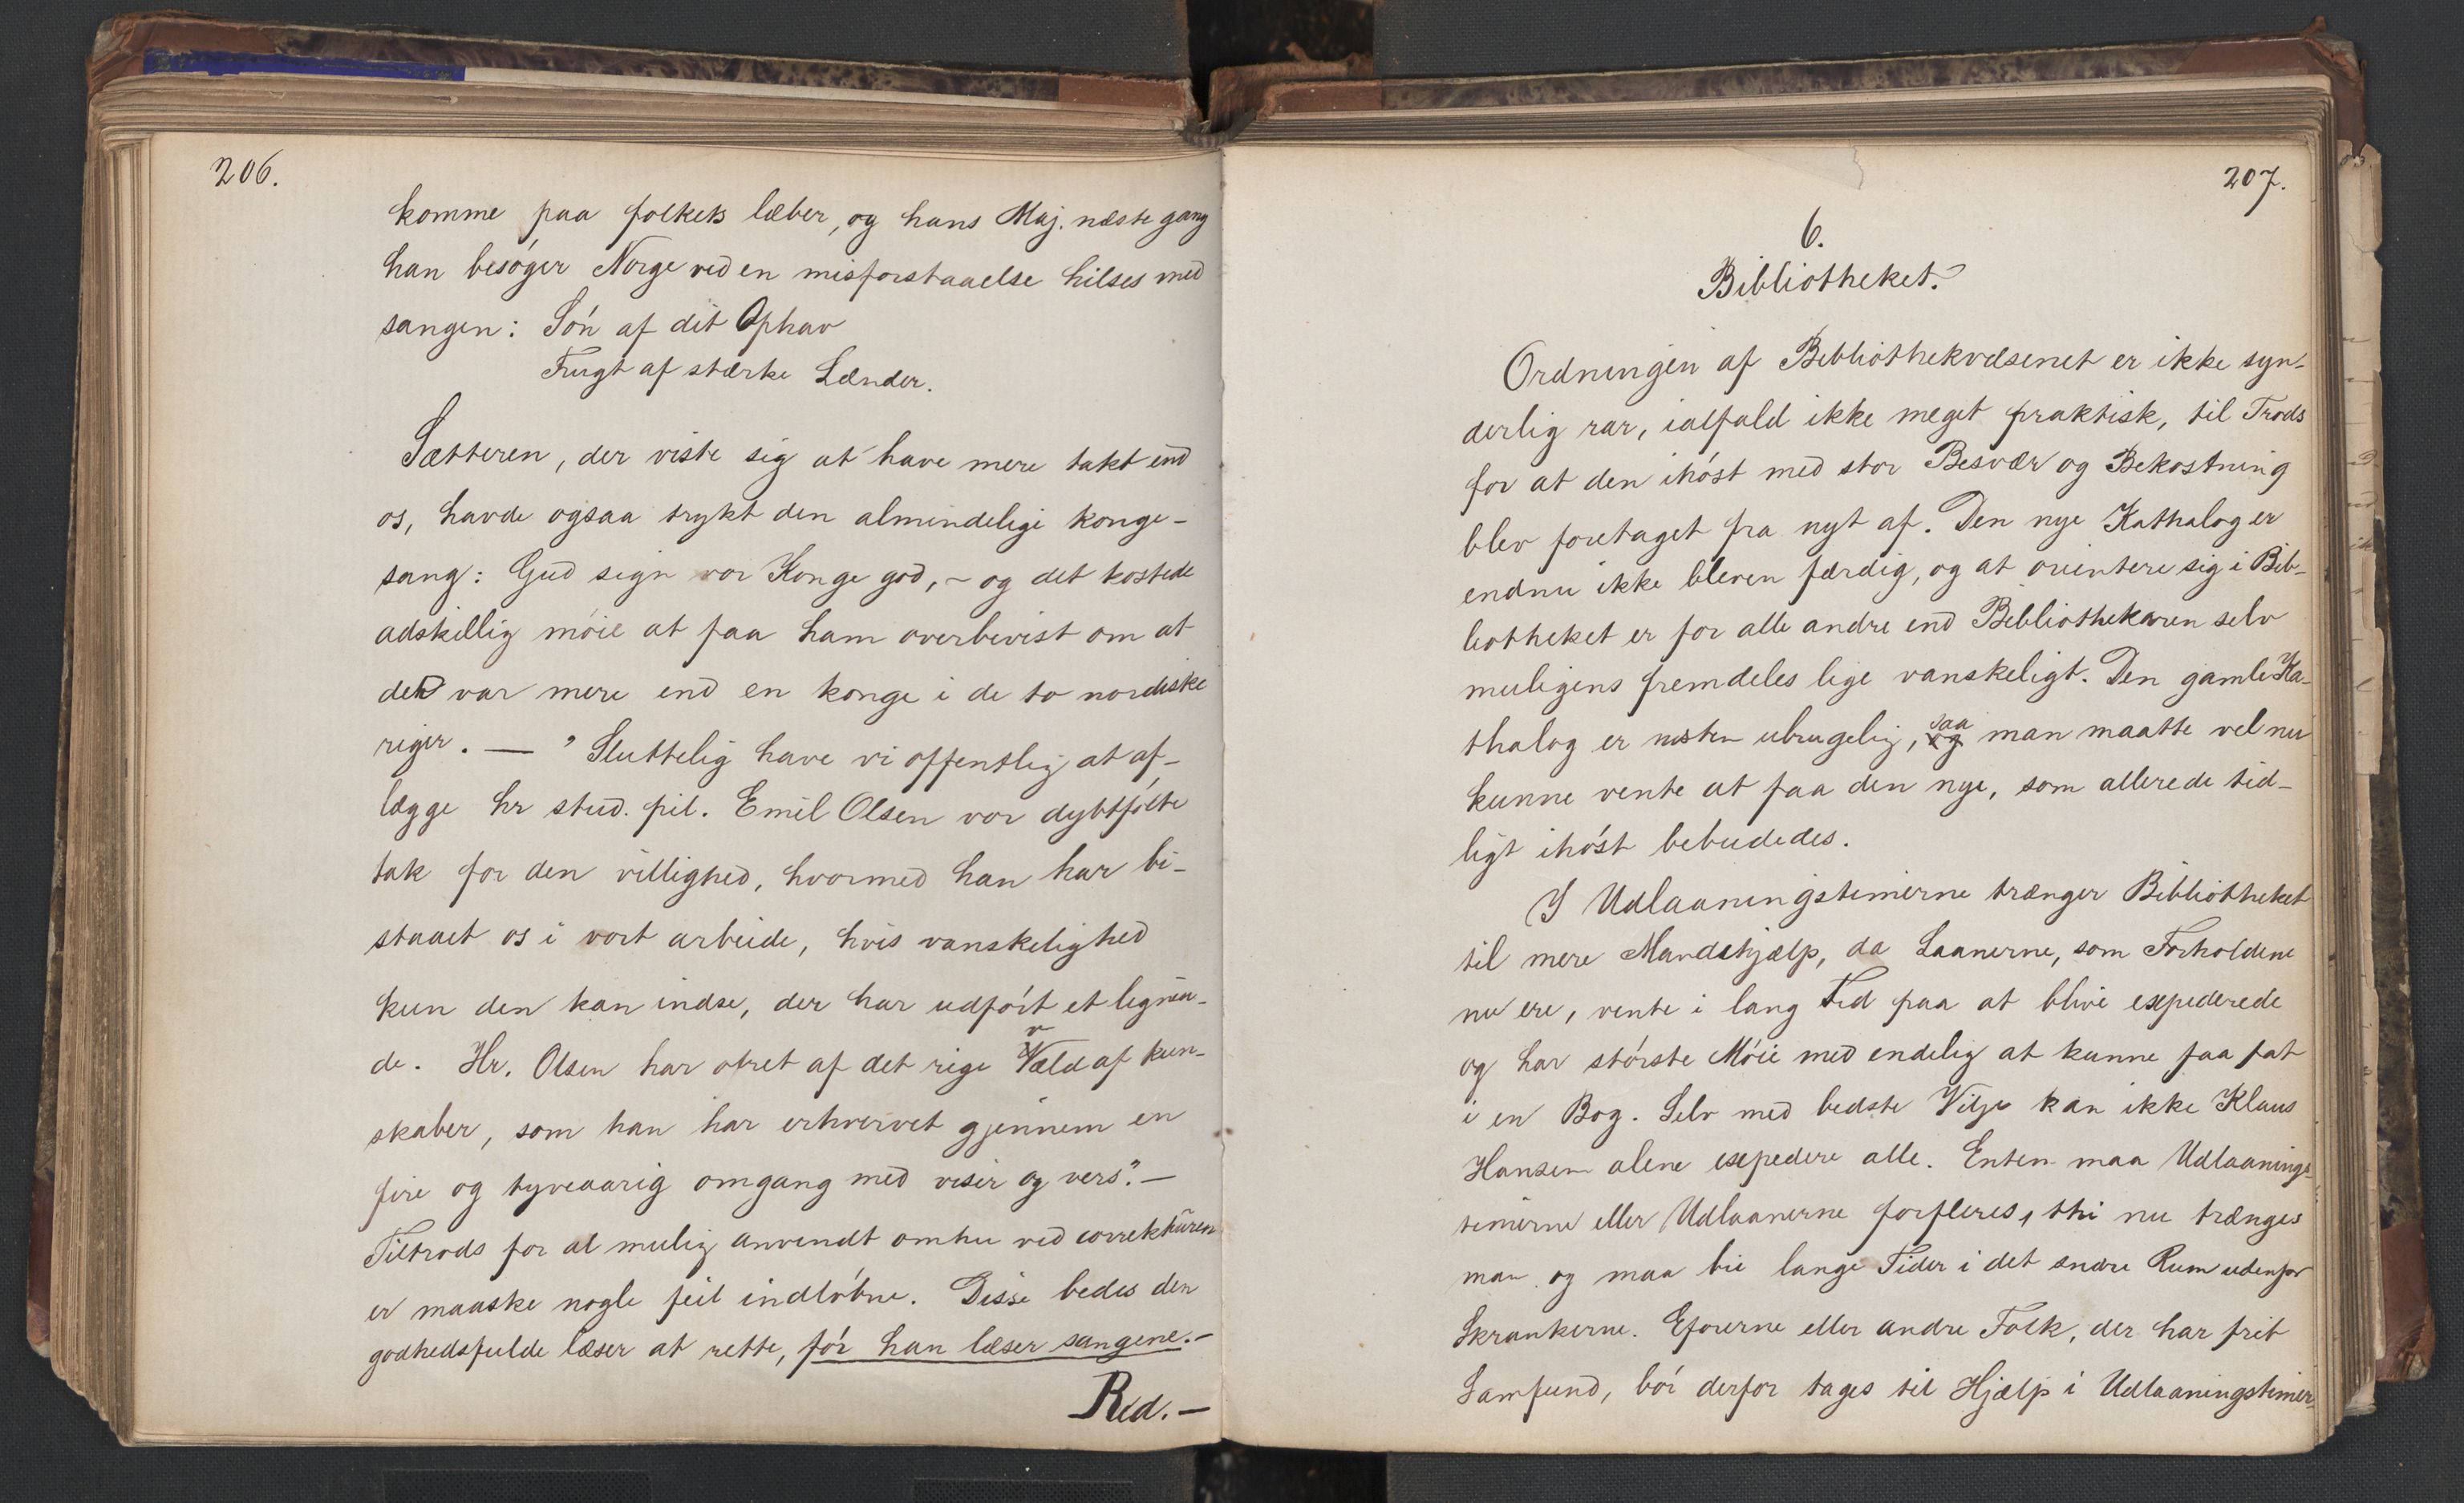 206.
komme paa folkets læber, og hans Maj. næste gang
han besøger Norge ved en misforstaaelse hilses med
sangen: Søn af dit Ophav
Frugt af stærke Lænder.
Sætteren, der viste sig at have mere takt end
os, havde ogsaa trykt den almindelige konge-
sang: Gud sign vor Konge god, - og det kostede
adskillig møie at faa ham overbevist om at
der var mere end en konge i de to nordiske
riger. — " Sluttelig have vi offentlig at af-
lægge hr stud. fil. Emil Olsen vor dybtfølte
tak for den villighed, hvormed han har bi-
staaet os i vort arbeide, hvis vanskelighed
kun den kan indse, der har udført et lignen-
de. Hr. Olsen har øset af det rige væld af kun-
skaber, som han har erhvervet gjennem en
fire og tyveaarig omgang med viser og vers". —
Tiltrods for al mulig anvendt omhu ved correkturen
er maaske nogle feil indløbne. Disse bedes den
godhedsfulde læser at rette, før han læser sangene. -
Red. —
207.
6.
Bibliotheket.
Ordningen af Bibliothekvæsenet er ikke syn-
derlig rar, ialfald ikke meget praktisk, til Trods
for at den ihøst med stor Besvær og Bekostning
blev foretaget fra nyt af. Den nye Kathalog er
endnu ikke bleven færdig, og at orientere sig i Bib-
liotheket er for alle andre end Bibliothekaren selv
muligens fremdeles lige vanskeligt. Den gamle Ka-
thalog er næsten ubrugelig, og saa man maatte vel nu
kunne vente at faa den nye, som allerede tid-
ligt ihøst bebudedes.
I Udlaaningstimerne trænger Bibliotheket
til mere Mandskjælp, da Laanerne, som Forholdene
nu ere, vente i lang Tid paa at blive expederede
og har største Møie med endelig at kunne faa fat
i en Bog. Selv med bedste Vilje kan ikke Klaus
Hansen alene expedere alle. Enten maa Udlaanings-
timerne eller Udlaanerne forfleres, thi nu trænges
man og maa bie lange Tider i det indre Rum udenfor
Skrankerne. Eforerne eller andre Folk, der har frit
Samfund, bør derfor tages til Hjælp i Udlaaningstimer-